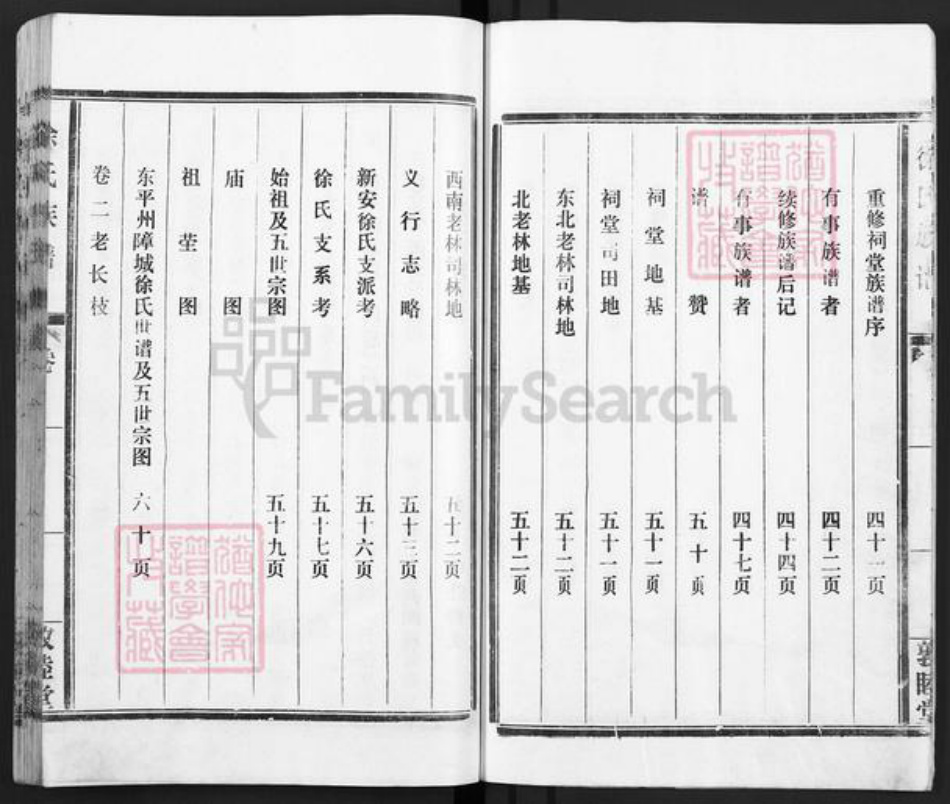 重修祠堂族谱序 四十一页
有事族谱者 四十二页
续修族谱后记 四十四页
有事族谱者 四十七页
谱赞 五十页
祠堂地基 五十一页
祠堂司田地 五十一页
东北老林司林地 五十二页
北老林地基 五十二页
西南老林司林地 五十二页
义行志略 五十三页
新安徐氏支派考 五十六页
徐氏支系考 五十七页
始祖及五世宗图 五十九页
庙图
祖茔图
东平州障城徐氏世谱及五世宗图 六十页
卷二老长枝
徐氏族谱
敦睦堂
FamilySearch